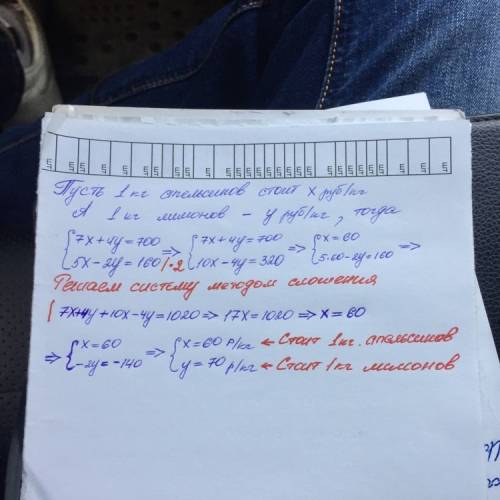 Пусть 1 кг апельсинов стоит x руб/кг
А 1 кг лимонов – y руб/кг, тогда
{7x+4y=700 => {7x+4y=700 => {x=60 =>
{5x-2y=160 |·2 {10x-4y=320 {5·60-2y=160
Решаем систему методом сложения
{ 7x+4y+10x-4y=1020 => 17x=1020 => x=60
=> {x=60 => {x=60 р/кг ← Стоит 1кг. апельсинов
{-2y=-140 {y=70 р/кг ← Стоит 1кг лимонов